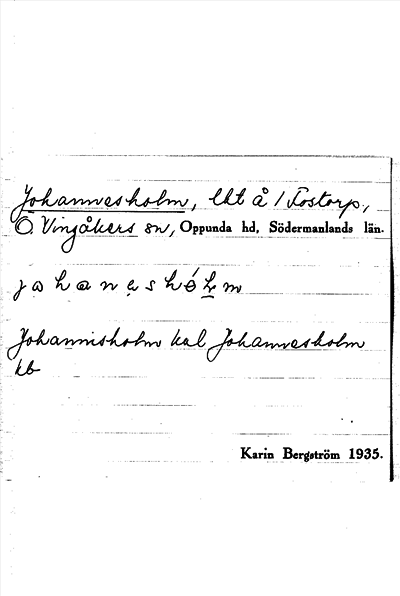 Johannesholm, lht å 1 Tostorp,
Ö. Vingåkers sn, Oppunda hd, Södermanlands län.
johanẹshólm
Johannisholm kal Johannesholm
kb
Karin Bergström 1935.